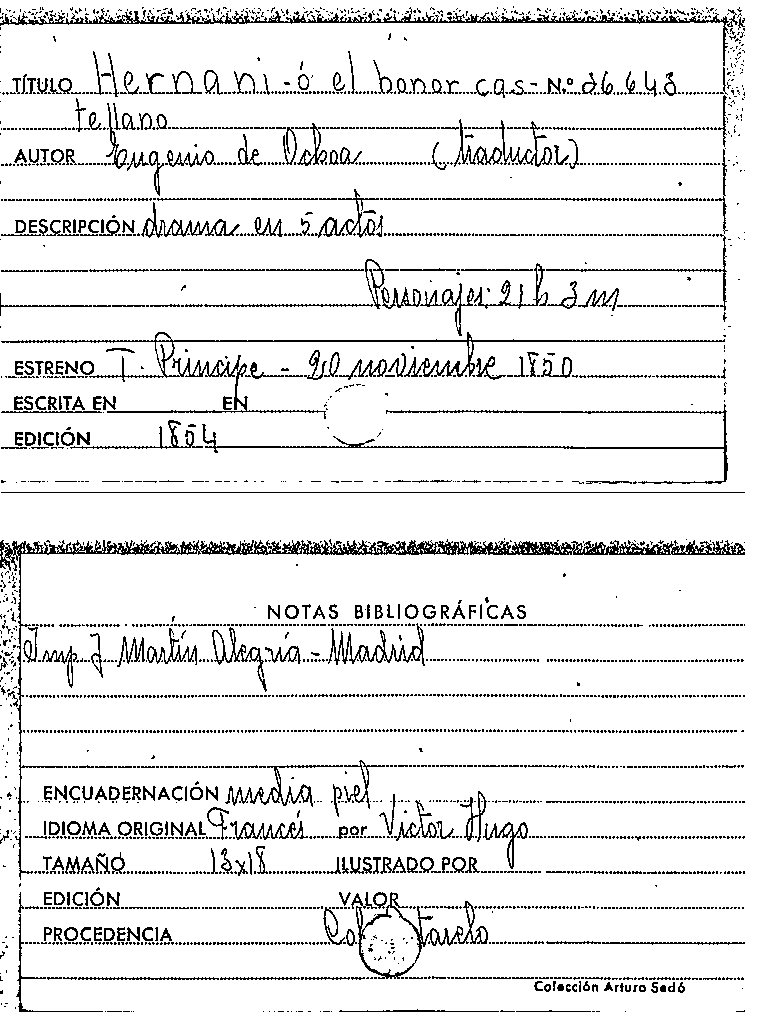 TÍTULO Hernani - ó el honor cas- N.º 36643
tellano
AUTOR Eugenio de Ochoa (traductor)
DESCRIPCIÓN drama en 5 actos
Personajes: 21 h 3 m
ESTRENO T. Principe - 20 noviembre 1850
ESCRITA EN EN
EDICIÓN 1854
NOTAS BIBLIOGRÁFICAS
Imp J Martín Alegría - Madrid
ENCUADERNACIÓN media piel
IDIOMA ORIGINAL Francés por Victor Hugo
TAMAÑO 13x18 ILUSTRADO POR
EDICIÓN VALOR
PROCEDENCIA Co tarelo
Colección Arturo Sedó